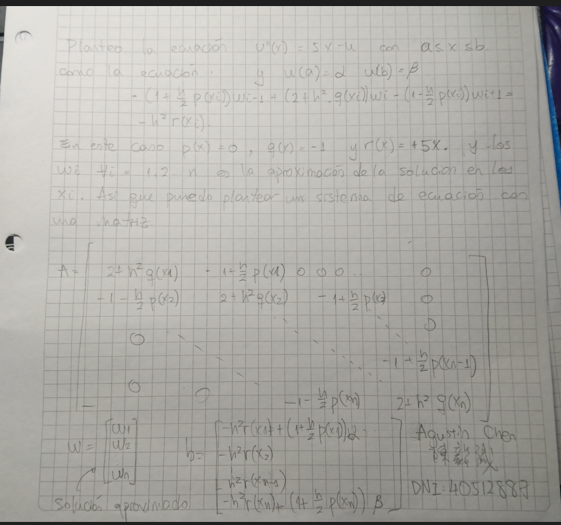 Planteo la ecuación u''(x) = 5x - u con a≤x≤b
como la ecuación: y u(a)=α u(b)=β
-(1+h/2 p(xi))wi-1 + (2+h². q(xi))wi - (1-h/2 p(xi))wi+1 =
-h² r(xi).
En este caso p(x)=0, q(x)=-1 y r(x)=+5x. y los
wi ∀i = 1,2..n es la aproximación de la solución en los
xi. Así que puedo plantear un sistema de ecuación con
una matriz
A= 2+h²q(x1) -1+h/2 p(x1) 0 0 0 0
-1-h/2 p(x2) 2+h²q(x2) -1+h/2 p(x2) 0
0
0
-1+h/2 p(xn-1)
0 0 -1-h/2 p(xn) 2+h² q(xn)
w= [w1 w2 wn] b= -h²r(x1)+(1+h/2 p(x1))α
-h²r(x2)
-h²r(xn-1)
-h²r(xn)+(1+h/2 p(xn))β
solución aproximado
Agustín Chen
DNI: 40512887